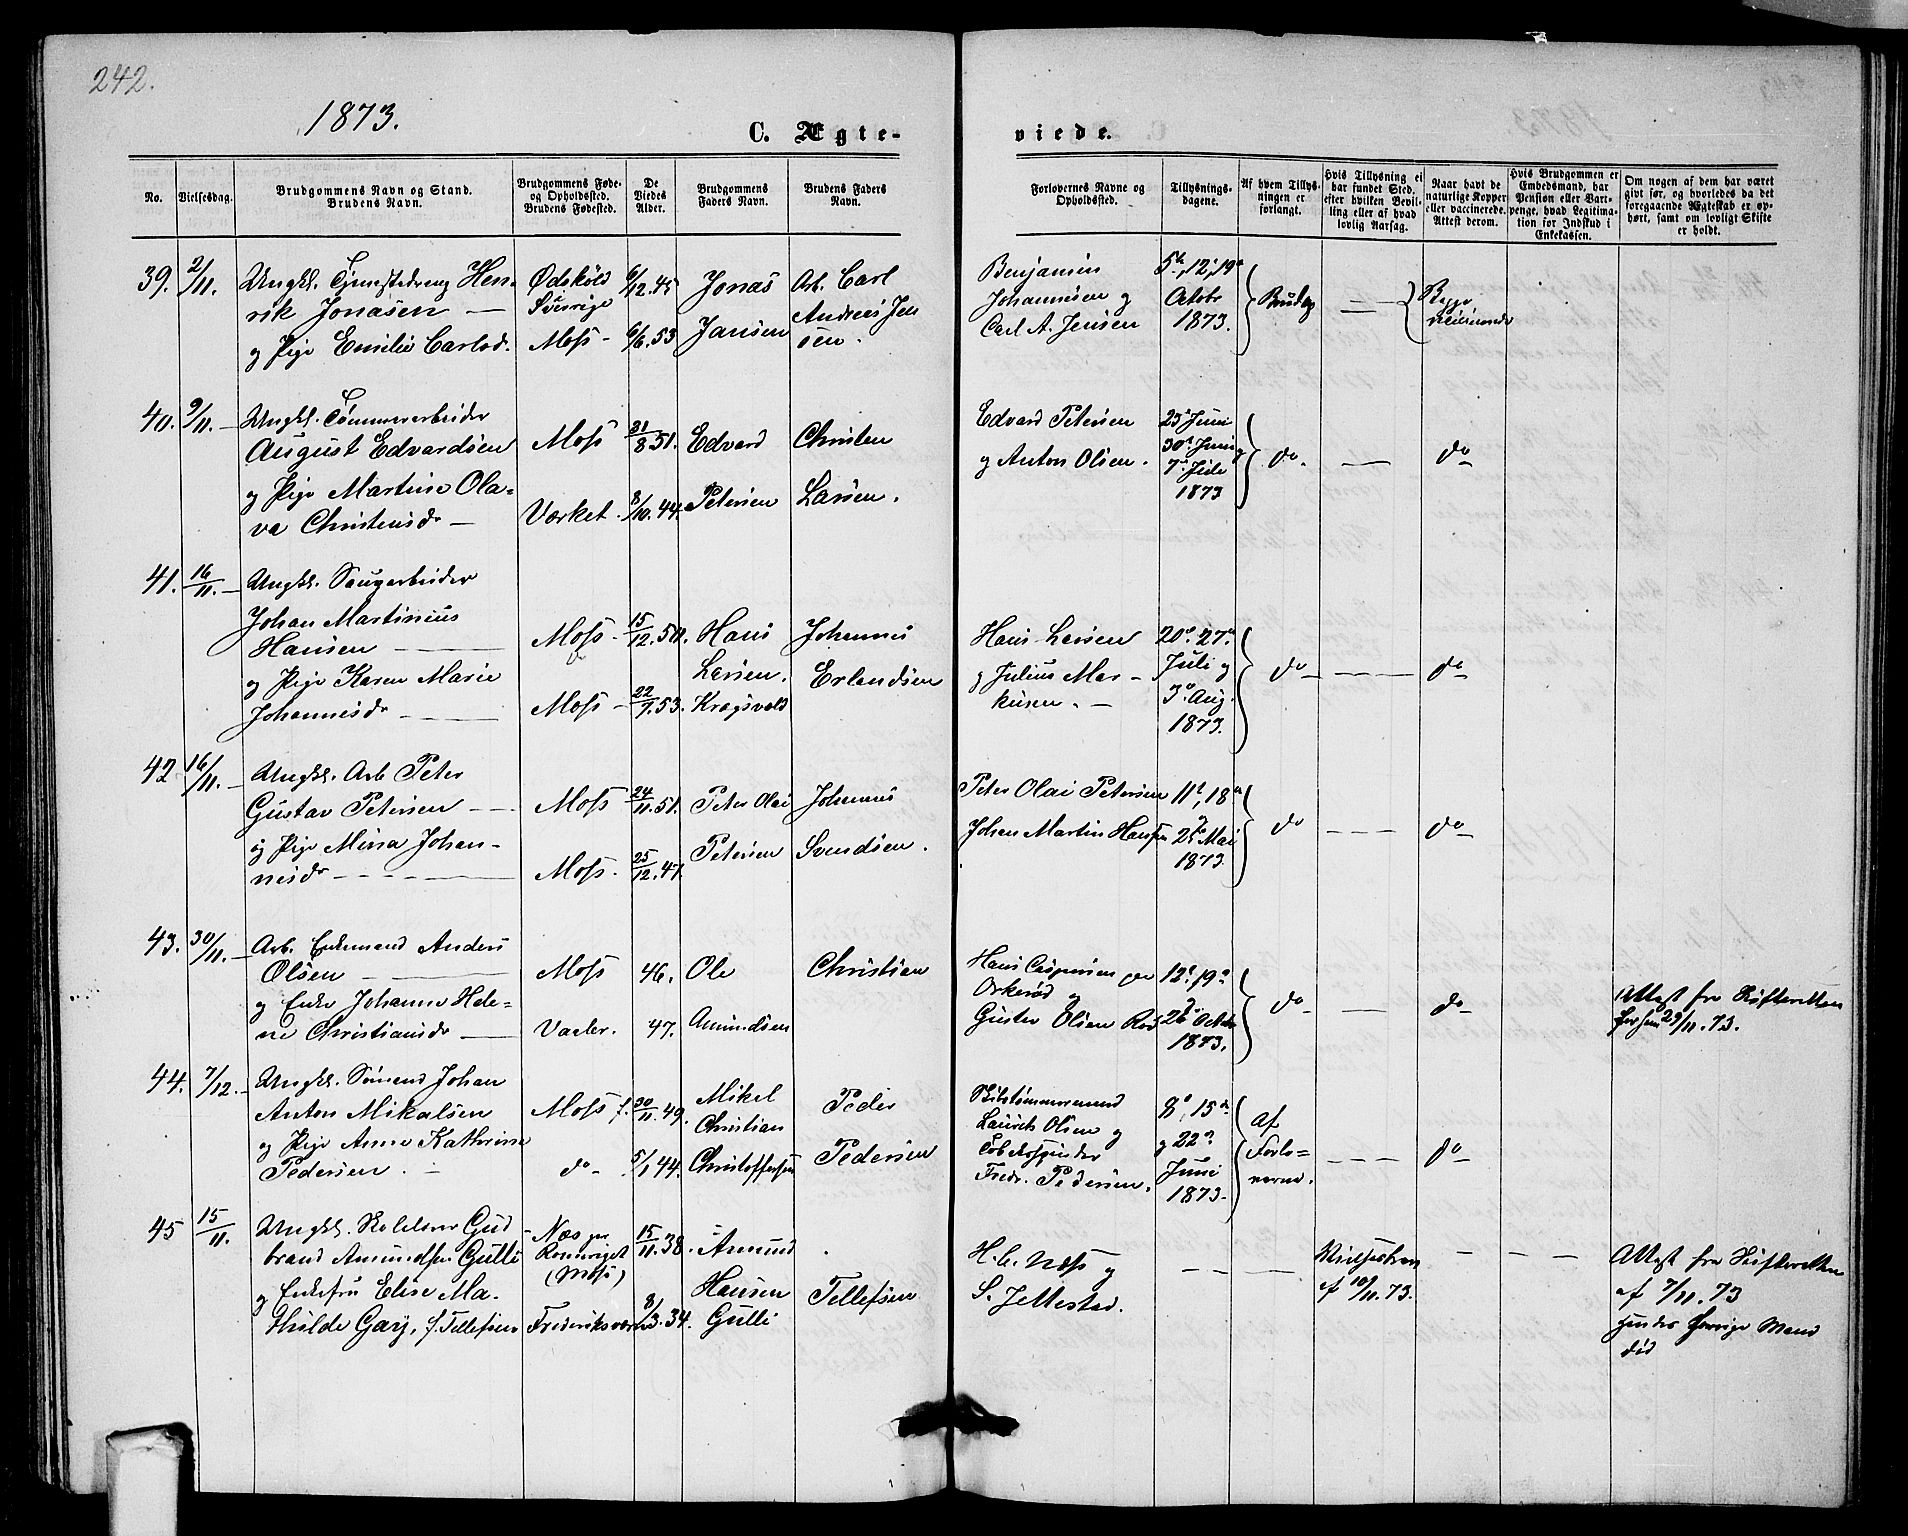 242.
1873.
C. Ægte-
viede.
No.
Vielsesdag.
Brudgommens Navn og Stand.
Brudens Navn.
Brudgommens Føde-
og Opholdssted.
Brudens Fødested.
De
Viedes
Alder.
Brudgommens
Faders Navn.
Brudens Faders
Navn.
Forlovernes Navne og
Opholdssted.
Tillysnings-
dagene.
Af hvem Tillys-
ningen er
forlangt.
Hvis Tillysning ei
har fundet Sted,
efter hvilken Bevil-
ling eller af hvad
lovlig Aarsag.
Naar havt de
naturlige Kopper
eller vaccinerede.
Attest derom.
Hvis Brudgommen er
Embedsmand, har
Pension eller Vart-
penge, hvad Legitima-
tion for Indskud i
Enkekassen.
Om nogen af dem har været
givt før, og hvorledes da det
foregaaende Ægteskab er op-
hørt, samt om lovligt Skifte
er holdt.
39. 2/11. Ungkl. Tjenestedreng Hen-
rik Jonasen —
og Pige Emilie Carlsd.
Ødskjöld
Sverrige
Moss -
6/12. 45
6/6. 53
Jonas
Jansen
Arb. Carl
Andreas Jen
sen.
Benjamin
Johannesen og
Carl A. Jensen
5te, 12te, 19de
Octobr
1873.
Brudg
—
Begge
vaccinerede
40. 9/11. — Ungkl. Tømmerarbeider
August Edvardsen
og Pige Martine Ola-
va Christensdr —
Moss
Værket.
21/8 51.
8/10. 44.
Edvard
Petersen
Christen
Larsen.
Edvard Petersen
og Anton Olsen.
23de Juni
30te Juni og
7de Juli
1873
do.
—
do
41. 16/11. — Ungkl. Saugarbeider
Johan Martinius
Hansen —
og Pige Karen Marie
Johannesdr —
Moss -
Moss -
15/12. 50.
22/7. 53.
Hans
Larsen.
Kragsvold
Johannes
Erlandsen
Hans Larsen
og Julius Mar-
kusen. —
20de 27de
Juli og
3de Aug.
1873.
do —
—
do
42 16/11. — Ungkl. Arb Peter
Gustav Petersen —
og Pige Mina Johan-
nesdr —
Moss
Moss.
24/11. 51.
25/12. 47.
Peter Olai
Petersen
Johannes
Svendsen.
Peter Olai Petersen
Johan Martin Hansen
11te, 18de
og 25de Mai
1873.
do
—
do
43. 30/11. — Arb. Enkemand Anders
Olsen —
og Enke Johanne Hele-
ne Christiansdr —
Moss
Vaaler.
46.
47.
Ole
Amundsen
Christian
Hans Caspersen
Orkerød og
Gustav Olsen Rød
12te 19de
og 26de Octobr
1873.
do
—
do
Attest fra Skifteretten
29/11. 73.
44. 7/12. — Ungkl. Sømand Johan
Anton Mikalsen
og Pige Anne Kathrine
Pedersen. —
Moss
do
30/11. 49.
5/1 44.
Mikel
Christian
Christoffersen
Peder
Pedersen
Laurits Olsen og
Fredr. Pedersen.
8de, 15de
og 22de
Juni
1873.
af
Forlo-
verne.
—
do
45 15/11. Ungkl. Gud
brand Amundsen Gulli
og Enkefru Elise Ma-
thilde Gary, f. Tellefsen
Næs pr.
Romeriget
(Moss)
Frederiksværn
15/11. 38.
8/3. 34.
Amund
Hansen
Gulli
Tellefsen
H. C. Næss og
S. Jellestad.
—
Vielsesbrev
af 10/11. 73.
—
—
Attest fra Skifteretten
af 7/11. 73
hendes forrige Mand
død